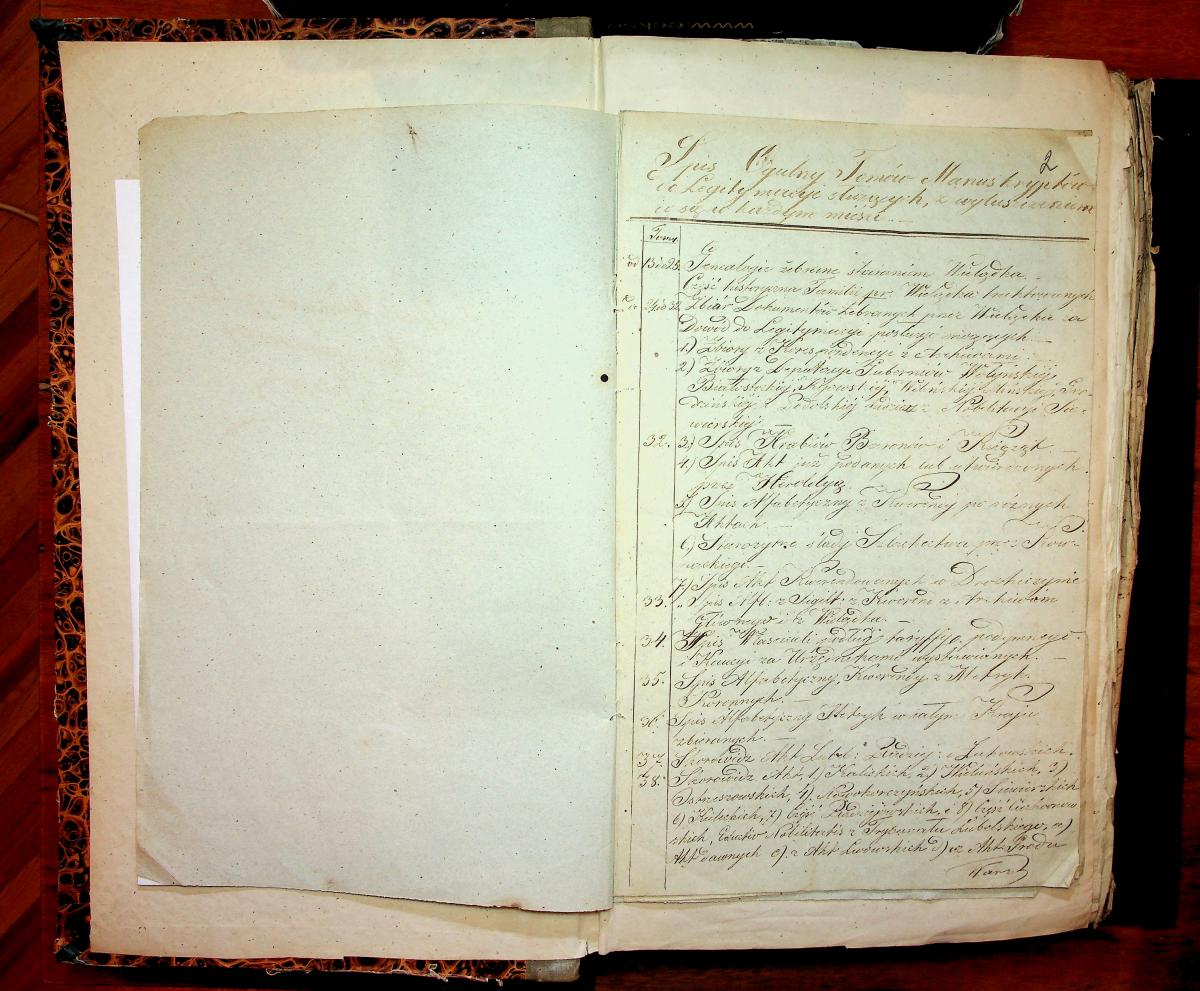 2
Spis Ogulny Tomów Manuskryptów
do Legitymacyi służących, z wyłuszczeniem
co się w każdym mieści. —
Tomy
od 1 do 23. Genealogie zebrane staraniem Wielądka. —
Część historyczna Familii pr. Wielądka traktowanych
24 do 32. Zbiór Dokumentów zebranych przez Wielądka za
Dowód do Legitymacyi posłużyć mogących. —
1) Zbiory z Korespondencyi z Archiwami. —
2) Zbiory z Deputacyi Guberniów Wołyńskiej
Białostockiej, Kijowskiej, Wileńskiej, Mińskiej, Gro-
dzieńskiej i Podolskiej tudzież z Nobilitacyi Sie-
wierskiej. —
32. 3) Spis Hrabiów Baronów i Książąt
4) Spis Akt już podanych lub utworzonych
przez Heroldyą.
5) Spis Alfabetyczny z Kwerendy po różnych
Aktach. —
6) Starożytne ślady Szlachectwa przez Kow-
nackiego. —
7) Spis Akt Kwerendowanych w Drohiczynie
33. „ Spis Alf: z Sigill: z Kwerend z Archiwum
Głównego i z Wielądka. —
34. Spis Właścicieli podług taryffy podymnego
i Kaucyi za Urzędnikami wystawionych. —
35. Spis Alfabetyczny, Kwerendy z Metryk
Koronnych. —
36. Spis Alfabetyczny Metryk w całym Kraju
zbieranych. —
37. Skorowidz Akt Lubel: Radziej: i Łukowskich.
38. Skorowidz Akt 1) Kaliskich, 2) Wieluńskich, 3)
Ostrzeszowskich, 4) Nowokorczyńskich, 5) Siewierskich
6) 7) Część Radziejowskich, i 8) Część Ciechanow-
skich, Nobilitatis z Trybunału Lubelskiego, a)
Akt dawnych c). z Akt Lwowskich d) z Akt Grodu
Warsz